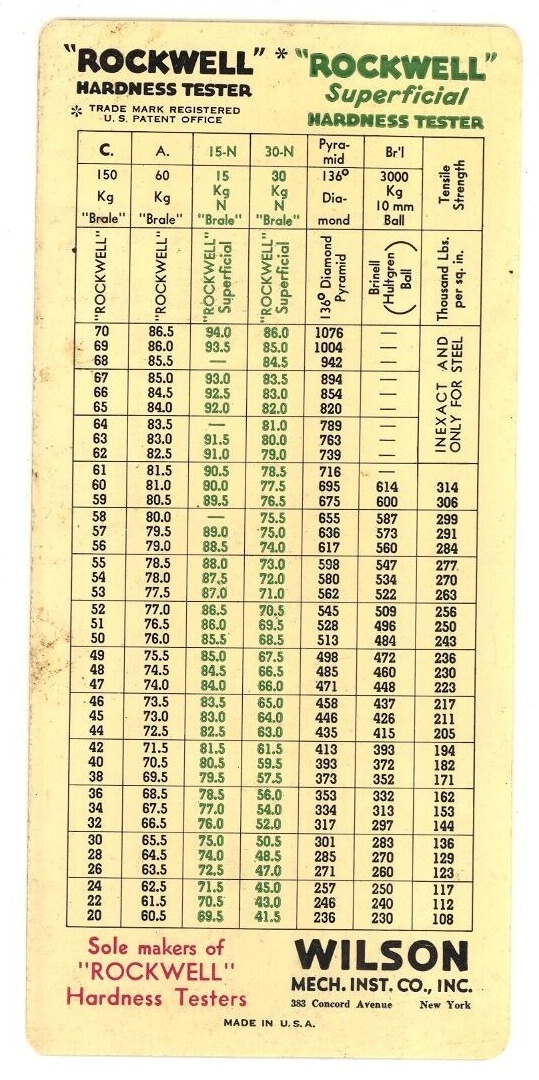 "ROCKWELL" * "ROCKWELL"
HARDNESS TESTER Superficial
* TRADE MARK REGISTERED
U. S. PATENT OFFICE HARDNESS TESTER
C. A. 15-N 30-N Pyra-mid Br'l Tensile Strength
150 60 15 30 136° 3000
Kg Kg Kg Kg Dia- Kg
N N 10 mm
"Brale" "Brale" "Brale" "Brale" mond Ball
"ROCKWELL" "ROCKWELL" "ROCKWELL" Superficial "ROCKWELL" Superficial 136° Diamond Pyramid Brinell (Hultgren) Ball Thousand Lbs. per sq. in.
INEXACT AND
ONLY FOR STEEL
70 86.5 94.0 86.0 1076 —
69 86.0 93.5 85.0 1004 —
68 85.5 — 84.5 942 —
67 85.0 93.0 83.5 894 —
66 84.5 92.5 83.0 854 —
65 84.0 92.0 82.0 820 —
64 83.5 — 81.0 789 —
63 83.0 91.5 80.0 763 —
62 82.5 91.0 79.0 739 —
61 81.5 90.5 78.5 716 —
60 81.0 90.0 77.5 695 614 314
59 80.5 89.5 76.5 675 600 306
58 80.0 — 75.5 655 587 299
57 79.5 89.0 75.0 636 573 291
56 79.0 88.5 74.0 617 560 284
55 78.5 88.0 73.0 598 547 277
54 78.0 87.5 72.0 580 534 270
53 77.5 87.0 71.0 562 522 263
52 77.0 86.5 70.5 545 509 256
51 76.5 86.0 69.5 528 496 250
50 76.0 85.5 68.5 513 484 243
49 75.5 85.0 67.5 498 472 236
48 74.5 84.5 66.5 485 460 230
47 74.0 84.0 66.0 471 448 223
46 73.5 83.5 65.0 458 437 217
45 73.0 83.0 64.0 446 426 211
44 72.5 82.5 63.0 435 415 205
42 71.5 81.5 61.5 413 393 194
40 70.5 80.5 59.5 393 372 182
38 69.5 79.5 57.5 373 352 171
36 68.5 78.5 56.0 353 332 162
34 67.5 77.0 54.0 334 313 153
32 66.5 76.0 52.0 317 297 144
30 65.5 75.0 50.5 301 283 136
28 64.5 74.0 48.5 285 270 129
26 63.5 72.5 47.0 271 260 123
24 62.5 71.5 45.0 257 250 117
22 61.5 70.5 43.0 246 240 112
20 60.5 69.5 41.5 236 230 108
Sole makers of
"ROCKWELL"
Hardness Testers
WILSON
MECH. INST. CO., INC.
383 Concord Avenue New York
MADE IN U. S. A.